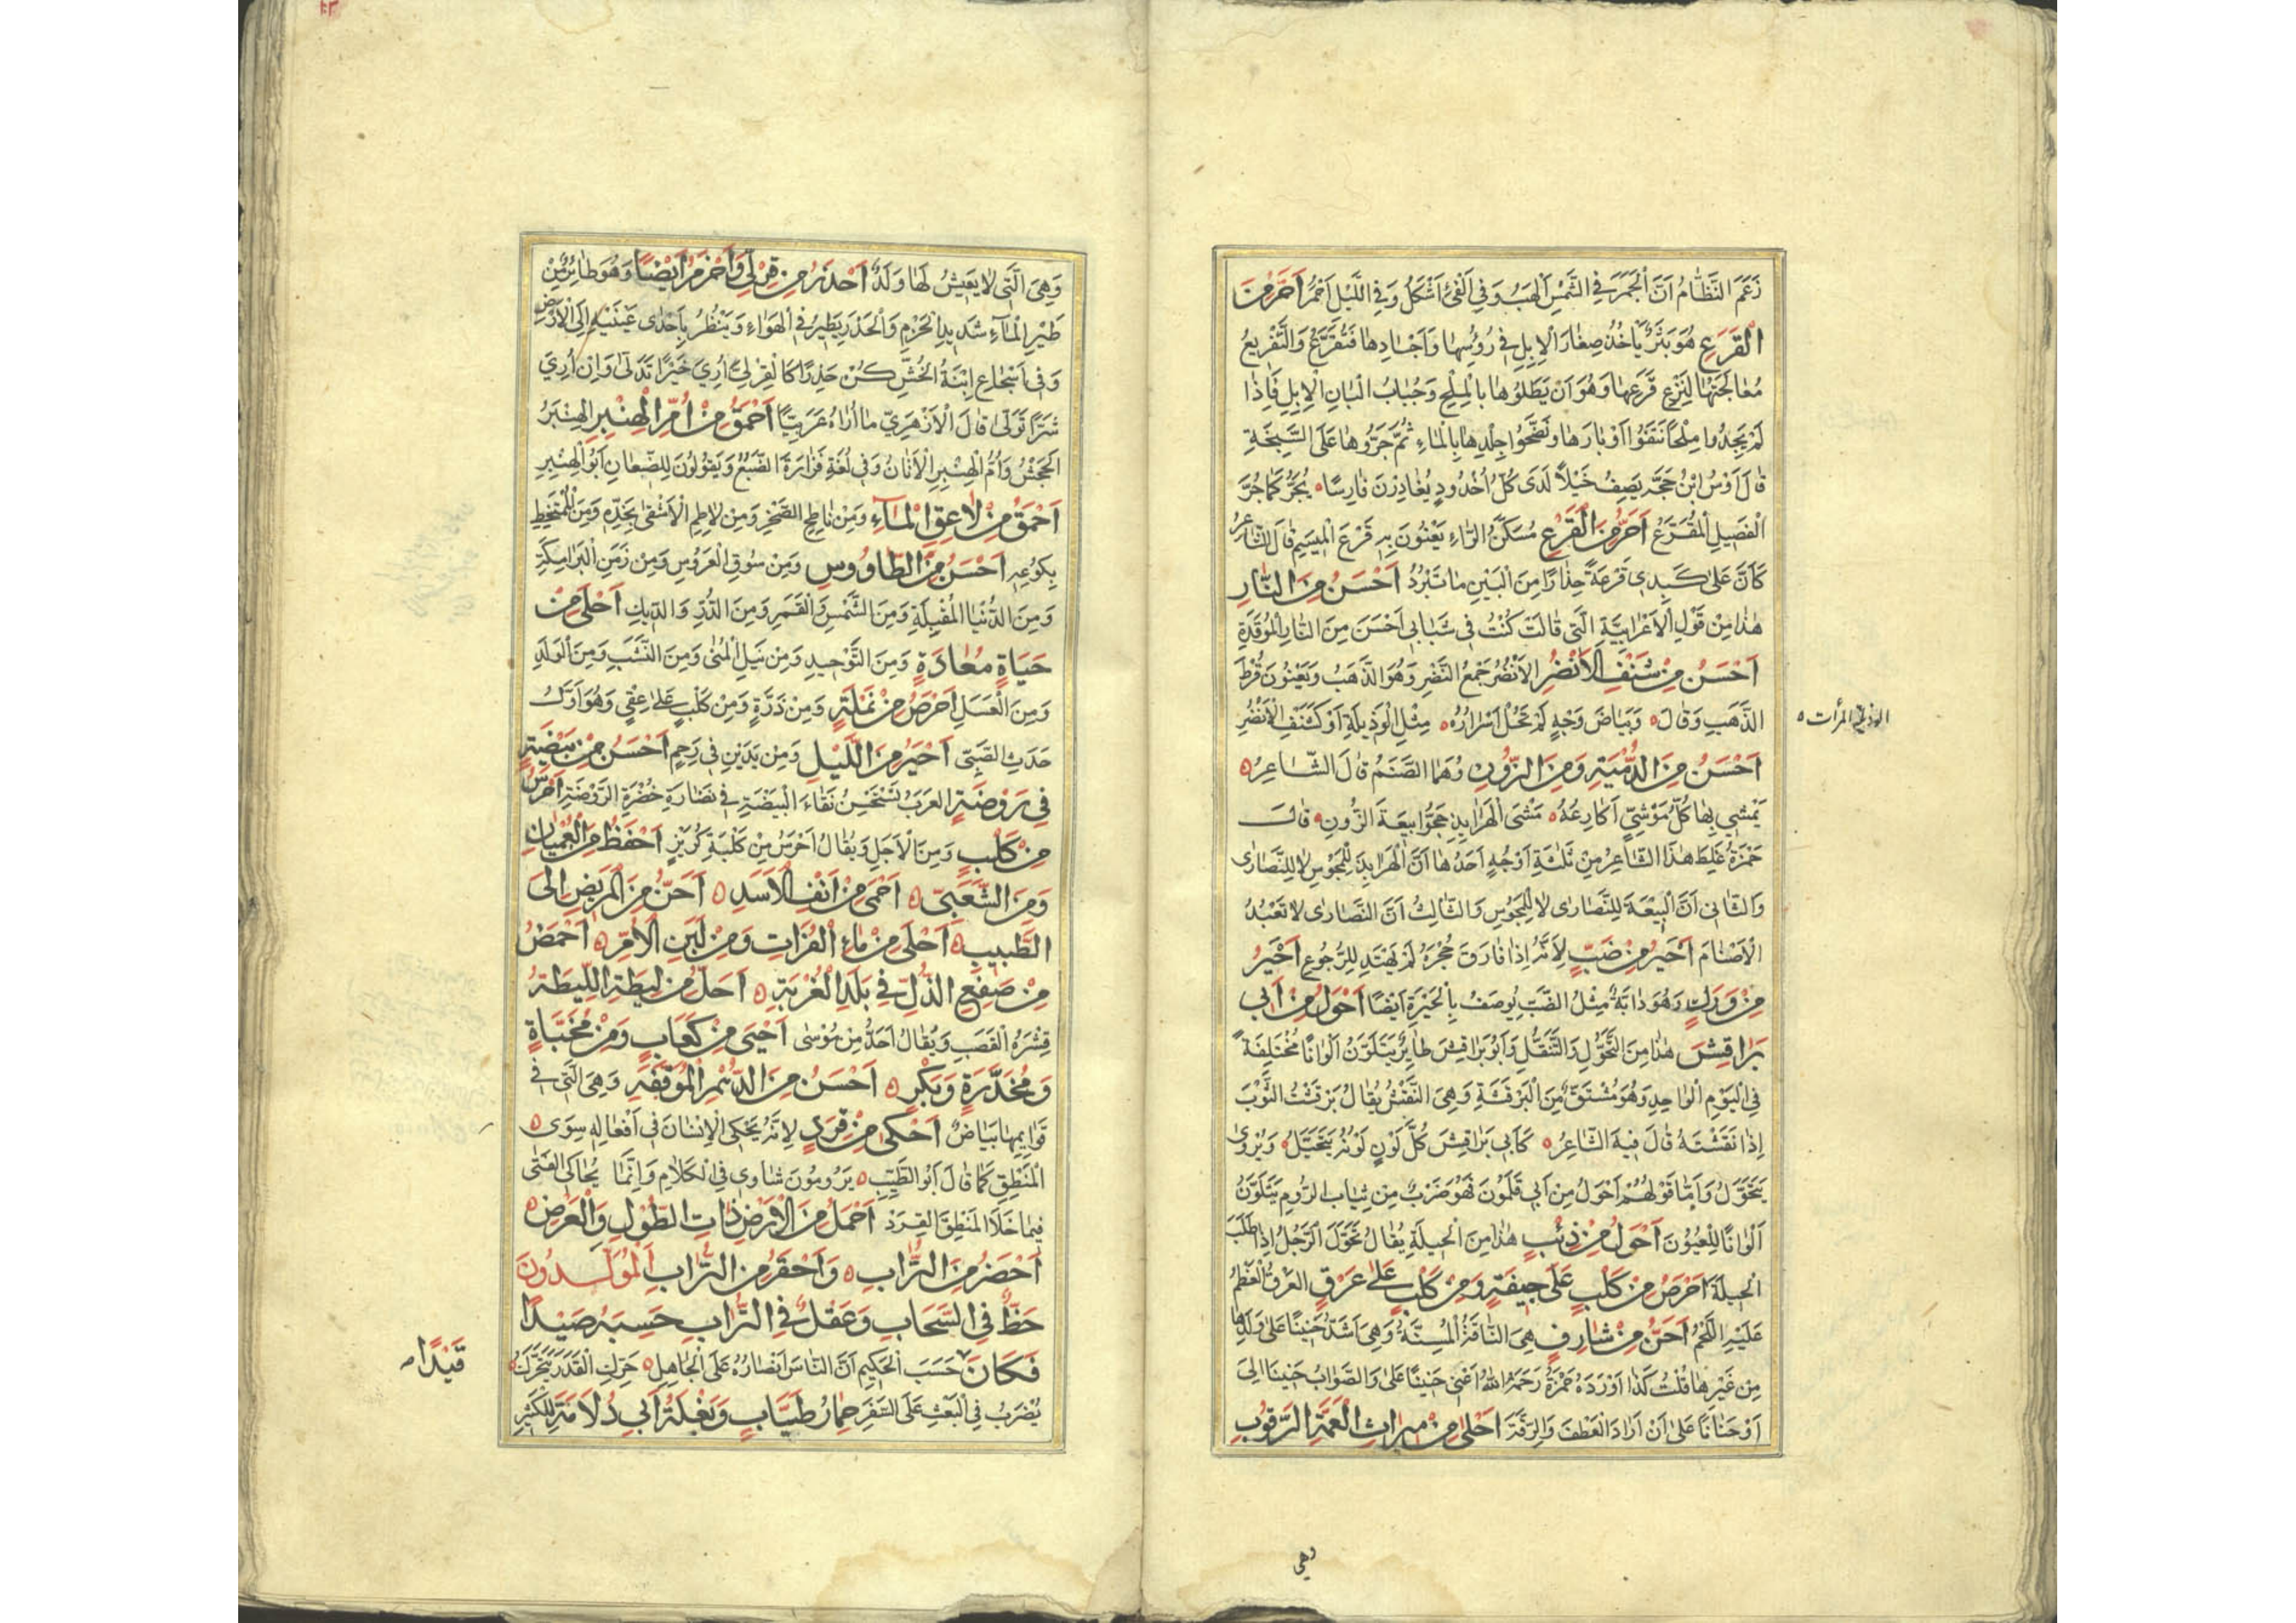 زَعَمَ النَّظَّامُ اَنَّ الْجَمْرَ فِي الشَّمْسِ اَكْهَبُ وَفِي الْفَيْءِ اَشْكَلُ وَفِي اللَّيْلِ اَحْمَرُ اَحَرُّ مِنَ
الْقَرَعِ هُوَ بَثْرٌ يَأْخُذُ صِغَارَ الْاِبِلِ فِي رُؤُسِهَا وَاَجْسَادِهَا فَتُقَرَّعُ وَالتَّقْرِيعُ
مُعَالَجَتُهَا لِنَزْعِ قَرَعِهَا وَهُوَ اَنْ يَطْلُوهَا بِالْمِلْحِ وَجُبَابِ اَلْبَانِ الْاِبِلِ فَاِذَا
لَمْ يَجِدُوا مِلْحًا نَتَفُوا اَوْبَارَهَا وَنَضَحُوا جِلْدِهَا بِالْمَاءِ ثُمَّ جَرُّوهَا عَلَى السَّبِخَةِ
قَالَ اَوْسُ ابْنُ حَجَرٍ يَصِفُ خَيْلًا لَدَى كُلِّ اُخْدُودٍ يُغَادِرْنَ فَارِسًا ۵ يُجَرُّ كَمَا جُرَّ
الْفَصِيلِ الْمُقَرَّعُ اَحَرُّ مِنَ الْقَرْعِ مُسَكَّنُ الرَّاءِ يَعْنُونَ بِهِ قَرْعَ الْمِيسَمِ قَالَ الشَّاعِرُ
كَاَنَّ عَلَى كَبِدِي قَرْعَةً حِذَارًا مِنَ الْبَيْنِ مَا تَبْرُدُ اَحْسَنُ مِنَ النَّارِ
هٰذَا مِنْ قَوْلِ الْاَعْرَابِيَّةِ الَّتِي قَالَتْ كُنْتُ فِي شَبَابِي اَحْسَنَ مِنَ النَّارِ الْمُوقَدَةِ
اَحْسَنُ مِنْ شَنْفِ الْاَنْضُرِ الْاَنْضُرُ جَمْعُ النَّضْرِ وَهُوَ الذَّهَبُ وَيَعْنُونَ قُرْطَ
الذَّهَبِ وَقَالَ ۵ وَبَيَاضُ وَجْهٍ لَمْ تَحُلْ اَسْرَارُهُ ۵ مِثْلِ الْوَذِيلَةِ اَوْ كَشَنْفِ الْاَنْضُرِ
الوذيلة المرأت ۵
اَحْسَنُ مِنَ الدُّمْيَةِ وَمِنَ الزُّونِ وَهُمَا الصَّنَمُ قَالَ الشَّاعِرُ ۵
يَمْشِي بِهَا كُلُّ مَوْشِيٍّ اَكَارِعُهُ ۵ مَشْيَ الْهَرَابِيذِ حَجُّوا بِيعَةَ الزُّونِ ۵ قَالَ
حَمْزَةُ غَلِطَ هٰذَا الشَّاعِرُ مِنْ ثَلٰثَةِ اَوْجُهٍ اَحَدُهَا اَنَّ الْهَرَابِذَ لِلْمَجُوسِ لَا لِلنَّصَارَى
وَالثَّانِي اَنَّ الْبِيعَةَ لِلنَّصَارَى لَا لِلْمَجُوسِ وَالثَّالِثُ اَنَّ النَّصَارَى لَا تَعْبُدُ
الْاَصْنَامَ اَحْيَرُ مِنْ ضَبٍّ لِاَنَّهُ اِذَا فَارَقَ جُحْرَهُ لَمْ يَهْتَدِ لِلرُّجُوعِ اَحْيَرُ
مِنْ وَرَلٍ وَهُوَ دَابَّةٌ مِثْلُ الضَّبِّ يُوصَفُ بِالْحَيْرَةِ اَيْضًا اَحْوَلُ مِنْ اَبِي
بَرَاقِشَ هٰذَا مِنَ التَّحَوُّلِ وَالتَّنَقُّلِ وَاَبُو بَرَاقِشَ طَائِرٌ يَتَلَوَّنُ اَلْوَانًا مُخْتَلِفَةً
فِي الْيَوْمِ الْوَاحِدِ وَهُوَ مُشْتَقٌّ مِنَ الْبَرْقَشَةِ وَهِيَ النَّقْشُ يُقَالُ بَرْقَشْتُ الثَّوْبَ
اِذَا نَقَشْتَهُ قَالَ فِيهِ الشَّاعِرُ ۵ كَاَبِي بَرَاقِشَ كُلَّ لَوْنٍ لَوْنُهُ يَتَخَيَّلُ ۵ وَيُرْوَى
يَتَحَوَّلُ وَاَمَّا قَوْلُهُمْ اَحْوَلُ مِنْ اَبِي قَلَمُونَ فَهُوَ ضَرْبٌ مِنْ ثِيَابِ الرُّومِ يَتَلَوَّنُ
اَلْوَانًا لِلْعُيُونِ اَحْوَلُ مِنْ ذِئْبٍ هٰذَا مِنَ الْحِيلَةِ يُقَالُ تَحَوَّلَ الرَّجُلُ اِذَا طَلَبَ
الْحِيلَةَ اَحْرَصُ مِنْ كَلْبٍ عَلَى جِيفَةٍ وَمِنْ كَلْبٍ عَلَى عَرْقٍ الْعَرْقُ الْعَظْمُ
عَلَيْهِ اللَّحْمُ اَحَنُّ مِنْ شَارِفٍ هِيَ النَّاقَةُ الْمُسِنَّةُ وَهِيَ اَشَدُّ حَنِينًا عَلَى وَلَدِهَا
مِنْ غَيْرِهَا قُلْتُ كَذَا اَوْرَدَهُ حَمْزَةُ رَحِمَهُ اللهُ اَعْنِي حَنِينًا عَلَى وَالصَّوَابُ حَنِينًا اِلَى
اَوْ حَنَانًا عَلَى اَنْ اَرَادَ الْعَطْفَ وَالرِّقَّةَ اَحْلَى مِنْ مِيرَاثِ الْعَمَّةِ الرَّقُوبِ
وهي
وَهِيَ الَّتِي لَا يَعِيشُ لَهَا وَلَدٌ اَحْذَرُ مِنْ قِرِلَّى وَاَحْزَمُ اَيْضًا وَهُوَ طَائِرٌ مِنْ
طَيْرِ الْمَاءِ شَدِيدُ الْحَزْمِ وَالْحَذَرِ يَطِيرُ فِي الْهَوَاءِ وَيَنْظُرُ بِاِحْدَى عَيْنَيْهِ اِلَى الْاَرْضِ
وَفِي اَسْجَاعِ ابْنَةِ الْخُسِّ كُنْ حَذِرًا كَالْقِرِلَّى اِنْ رَاَى خَيْرًا تَدَلَّى وَاِنْ رَاَى
شَرًّا تَوَلَّى قَالَ الْاَزْهَرِيُّ مَا اُرَاهُ عَرَبِيًّا اَحْمَقُ مِنْ اُمِّ الْهِنْبِرِ الْهِنْبَرُ
الْجَحْشُ وَاُمُّ الْهِنْبِرِ الْاَتَانُ وَفِي لُغَةِ فَزَارَةَ الضَّبُعُ وَيَقُولُونَ لِلضِّبْعَانِ اَبُو الْهِنْبِرِ
اَحْمَقُ مِنْ لَاعِقِ الْمَاءِ وَمِنْ نَاطِحِ الصَّخْرِ وَمِنْ لَاطِمِ الْاَشْفَى بِخَدِّهِ وَمِنَ الْمُمْتَخِطِ
بِكُوعِهِ اَحْسَنُ مِنَ الطَّاوُوسِ وَمِنْ سُوقِ الْعَرُوسِ وَمِنْ زَمَنِ الْبَرَامِكَةِ
وَمِنَ الدُّنْيَا الْمُقْبِلَةِ وَمِنَ الشَّمْسِ وَالْقَمَرِ وَمِنَ الدُّرِّ وَالدِّيكِ اَحْلَى مِنْ
حَيَاةٍ مُعَادَةٍ وَمِنَ التَّوْحِيدِ وَمِنْ نَيْلِ الْمُنَى وَمِنَ النَّشَبِ وَمِنَ الْوَلَدِ
وَمِنَ الْعَسَلِ اَحْرَصُ مِنْ نَمْلَةٍ وَمِنْ ذَرَّةٍ وَمِنْ كَلْبٍ عَلَى عِقْيٍ وَهُوَ اَوَّلُ
حَدَثِ الصَّبِيِّ اَحْيَرُ مِنَ اللَّيْلِ وَمِنْ يَدَيْنِ فِي رَحِمٍ اَحْسَنُ مِنْ بَيْضَةٍ
فِي رَوْضَةٍ الْعَرَبُ تَسْتَحْسِنُ نَقَاءَ الْبَيْضَةِ فِي نَضَارَةِ خُضْرَةِ الرَّوْضَةِ اَحْرَسُ
مِنْ كَلْبٍ وَمِنَ الْاَجَلِ وَيُقَالُ اَحْرَسُ مِنْ كَلْبَةِ كُرَيْزٍ اَحْفَظُ مِنَ الْعُمْيَانِ
وَمِنَ الشَّعْبِيِّ ۵ اَحْمَى مِنْ اَنْفِ الْاَسَدِ ۵ اَحَنُّ مِنَ الْمَرِيضِ اِلَى
الطَّبِيبِ ۵ اَحْلَى مِنْ مَاءِ الْفُرَاتِ وَمِنْ لَبَنِ الْاُمِّ ۵ اَحْمَضُ
مِنْ صَفْعِ الذُّلِّ فِي بَلَدِ الْغُرْبَةِ ۵ اَحَدُّ مِنْ لِيطَةٍ اللِّيطَةُ
قِشْرَةُ الْقَصَبِ وَيُقَالُ اَحَدُّ مِنْ مُوسَى اَحْيَى مِنْ كَعَابٍ وَمِنْ مُخَبَّاةٍ
وَمُخَدَّرَةٍ وَبِكْرٍ ۵ اَحْسَنُ مِنَ الدُّهْمِ الْمُوَقَّفَةِ وَهِيَ الَّتِي فِي
قَوَايِمِهَا بَيَاضٌ اَحْكَى مِنْ قِرْدٍ لِاَنَّهُ يَحْكِي الْاِنْسَانَ فِي اَفْعَالِهِ سِوَى ۵
الْمَنْطِقِ كَمَا قَالَ اَبُو الطَّيِّبِ ۵ يَرُومُونَ شَاوِي فِي الْكَلَامِ وَاِنَّمَا يُحَاكِي الْفَتَى
فِيمَا خَلَا الْمَنْطِقَ الْقِرْدُ اَحْمَلُ مِنَ الْاَرْضِ ذَاتِ الطُّولِ وَالْعَرْضِ ۵
اَحْضَرُ مِنَ التُّرَابِ ۵ وَاَحْقَرُ مِنَ التُّرَابِ الْمُوَلَّدُونَ
حَظٌّ فِي السَّحَابِ وَعَقْلٌ فِي التُّرَابِ حَسِبَهُ صَيْدًا
فَكَانَ قَيْدًا حَسْبُ الْحَكِيمِ اَنَّ النَّاسَ اَنْصَارُهُ عَلَى الْجَاهِلِ ۵ حَرِّكِ الْقَدَرَ يَتَحَرَّكْ ۵
يُضْرَبُ فِي الْبَعْثِ عَلَى السَّفَرِ حِمَارُ طَيَّابٍ وَبَغْلَةُ اَبِي دُلَامَةَ لِلْكَثِيرِ